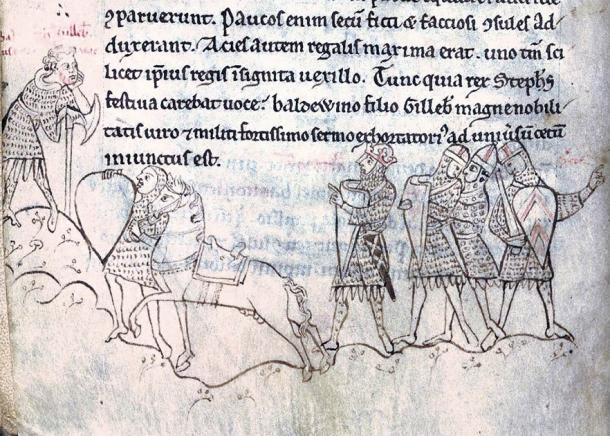 ꝯparuerunt. Paucos enim secū ficti & factiosi ꝯsules ad/
duxerant. Acies autem regalis maxima erat. uno tm̄ sci
licet ip̄ius regis īsignita uexillo. Tunc quia rex Stephs
festiua carebat uoce: baldewino filio Gilleb̄ magne nobili/
tatis uiro ⁊ militi fortissimo sermo exhortatoriꝰ ad uniūsū cetū
iniunctus est.